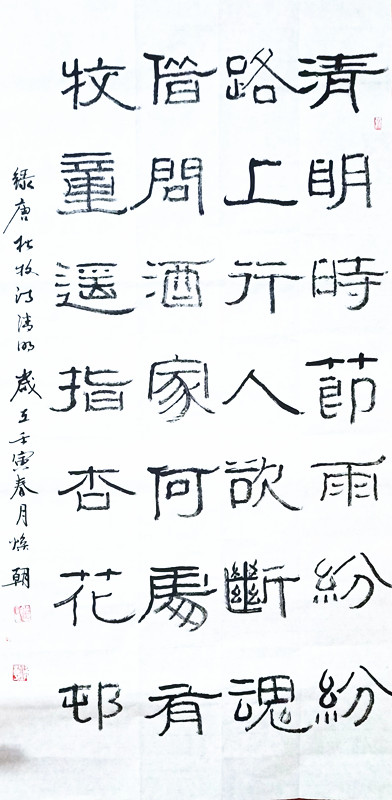 清明時節雨紛紛
路上行人欲斷魂
借問酒家何馬有
牧童遙指杏花邨
録唐杜牧詩清明歲在壬寅春月煥朝